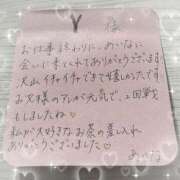 Y 様
お仕事終わりに、あいなに
会いに来てくれてありがとうございます
沢山イチャイチャできて嬉しかったです
お兄様のアレが元気で、2回戦
もしましたね♡
私が大好きなお茶の差入れ
ありがとうございました♡
あいな